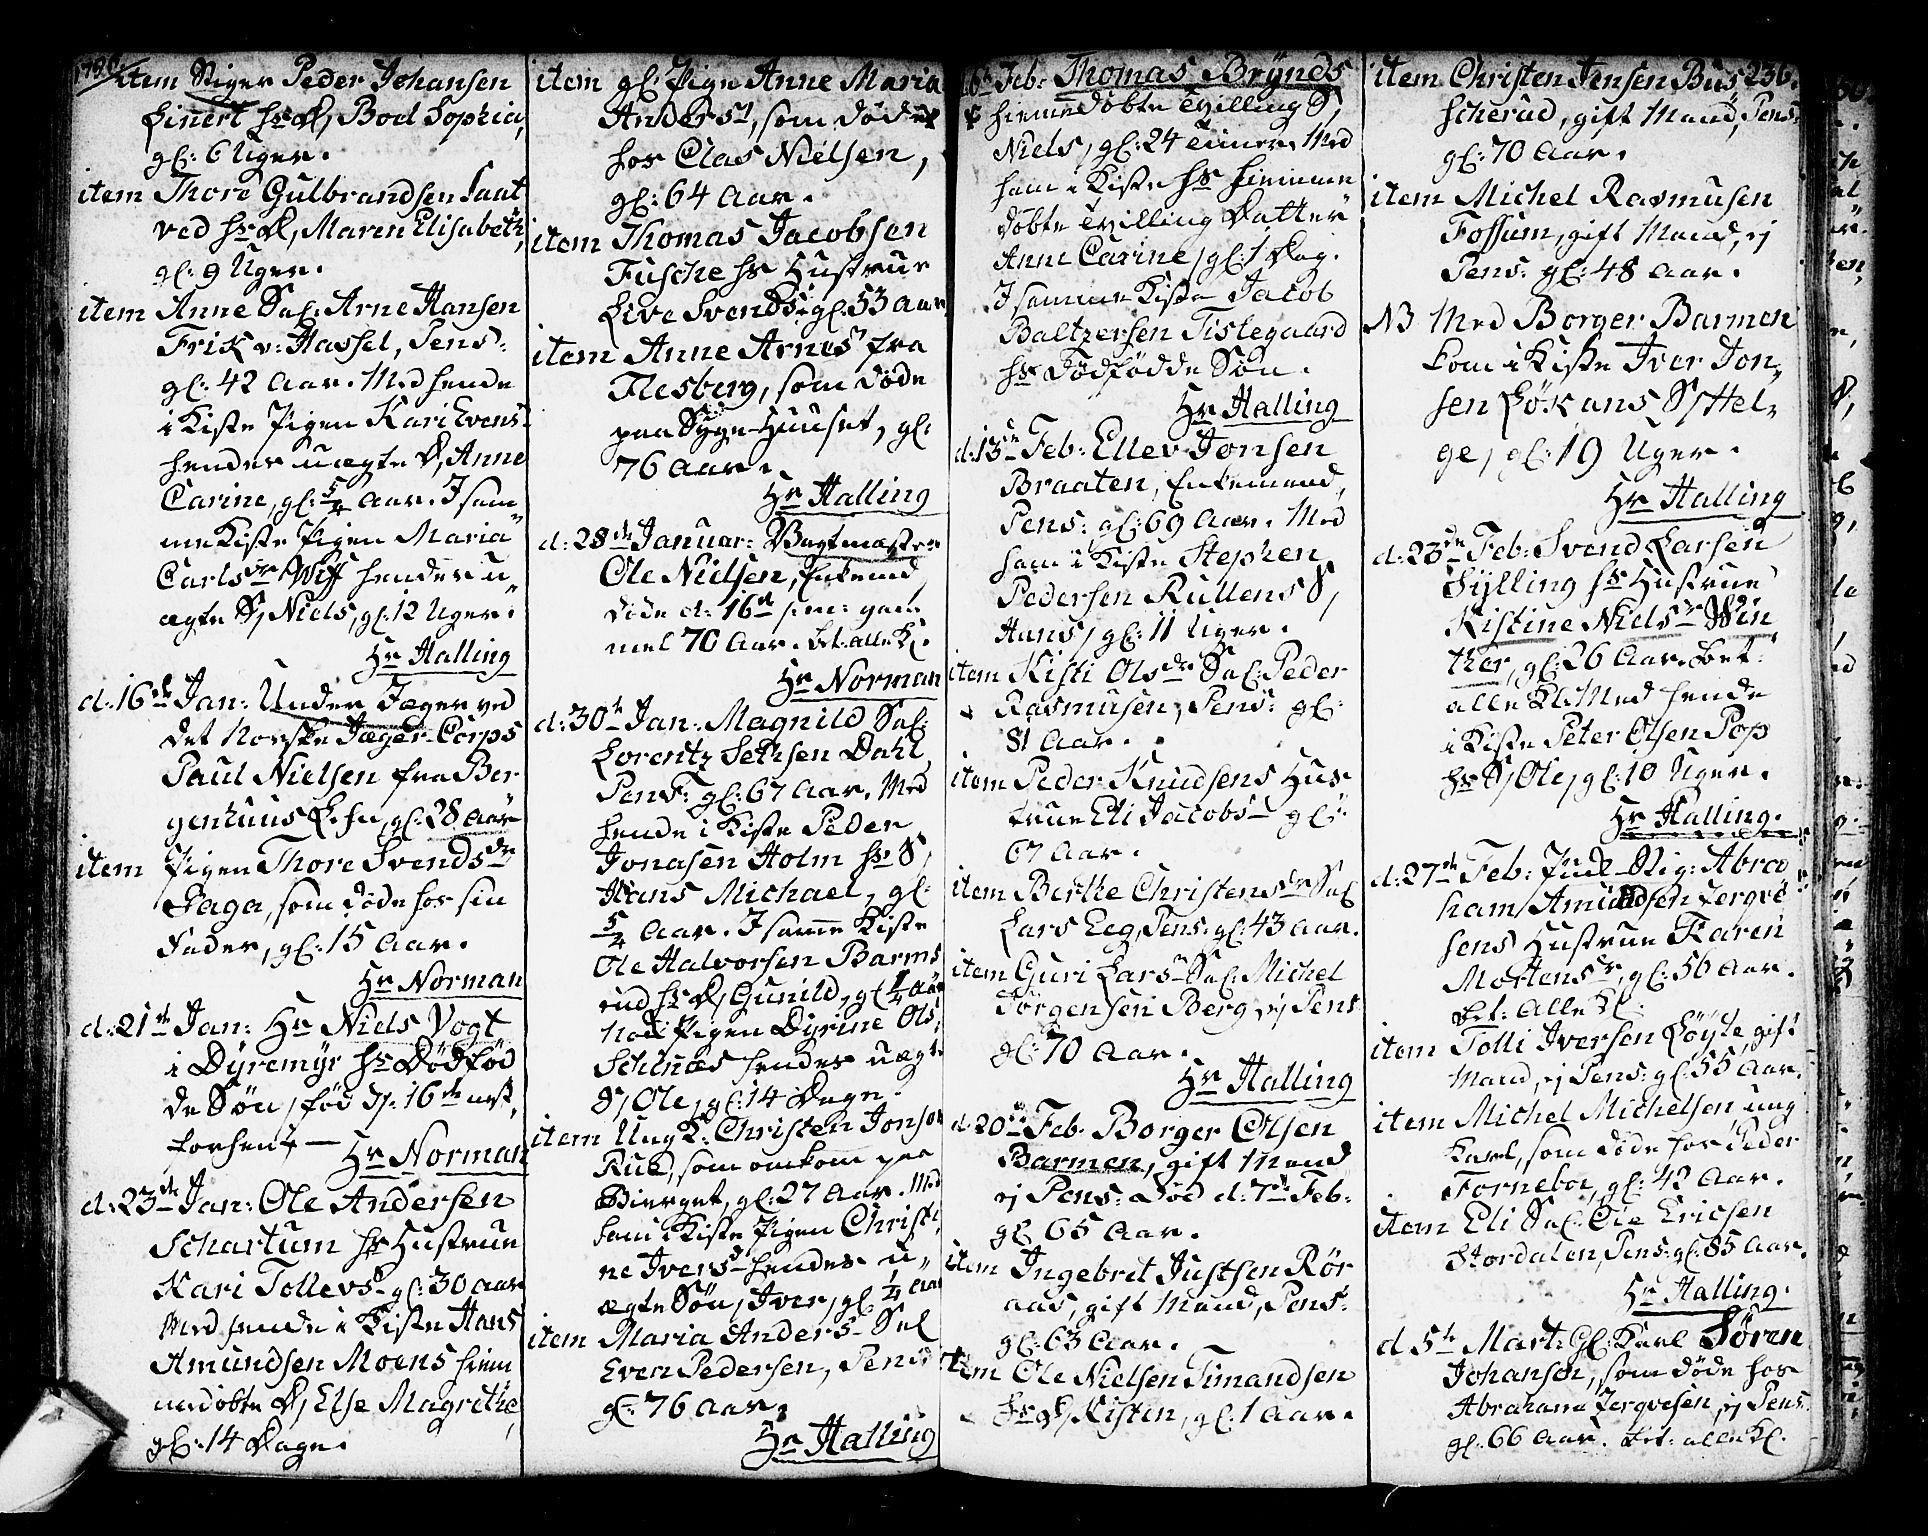 1786.
item Stiger Peder Johansen
Linert hs D, Boel Sophia,
gl: 6 Uger.
item Thore Gulbrandsen Saat
ved hs D, Maren Elisabeth,
gl: 9 Uger.
item Anne Sal: Arne Hansen
Frik v: Hassel, Pens:
gl: 42 Aar. Med hende
i Kiste Pigen Kari Evens
hendes uægte D, Anne
Carine, gl: 5/4 Aar. I sam
me Kiste Pigen Maria
Carlsdr Wiff hendes u
ægte S, Niels, gl: 12 Uger.
Hr Halling
d: 16de Jan: Under Jæger ved
det Norske Jæger-Corps
Paul Nielsen fra Ber
genhuus Lehn, gl: 28 Aar
item Pigen Thore Svendsdr
Saga, som døde hos sin
Fader, gl: 15 Aar.
Hr Norman
d: 21th Jan: Hr Niels Vogt
i Dyremyr hs Dødfød
de Søn, fød d: 16de næst
forhen. — Hr Norman
d: 23de Jan: Ole Andersen
Schartum hs Hustrue
Kari Tollevs- gl: 30 Aar
Med hende i Kiste Hans
Amundsen Moens hiem
medøbte D, Else Magrethe,
gl: 14 Dage.
item gl: Pige Anne Maria
Andersd, som døde
hos Clas Nielsen,
gl: 64 Aar.
item Thomas Jacobsen
Fusche hs Hustrue
Live Svends- gl: 53 Aar
item Anne Arnes fra
Flesberg, som døde
paa Syge-Huuset, gl:
76 Aar.
Hr Halling
d: 28de Januar: Vagtmæster
Ole Nielsen, Enkemd
døde d: 16d sm: gam
mel 70 Aar. bet: alle Kl.
Hr Norman
d: 30th Jan: Magnild Sal:
Lorentz Sethsen Dahl,
Pens: gl: 67 Aar. Med
hende i Kiste Peder
Jonasen Holm hs S,
Hans Michael, gl:
5/4 Aar. I samme Kiste
Ole Halvorsen Barms
rud hs D, Gunild, gl 1/4 Aar
Nod Pigen Dyrine Ols
Schinæs hendes uægte
S, Ole, gl: 14 Dage.
item Ung K: Christen Jonsen
Rue, som omkom paa
Bierget, gl: 27 Aar. Med
ham i Kiste Pigen Christi
ne Ivers- hendes u
ægte Søn, Iver, gl 1/4 Aar
item Maria Anders- Sal
Even Pedersen, Pens
gl: 76 Aar.
Hr Halling
6te Feb: Thomas Brynds
hiemedøbte Tvilling S,
Niels, gl: 24 Timer. Med
ham i Kiste hs hiemme
døbte Tvilling Datter
Anne Carine, gl: 1 Dag.
I samme Kiste Jacob
Baltzersen Tistegaard
hs Dødfødde Søn.
Hr Halling
d: 13de Feb: Ellev Jonsen
Braaten, Enkemand,
Pens: gl: 69 Aar. Med
ham i Kiste Stephen
Pedersen Rullens S,
Hans, gl: 11 Uger.
item Kisti Olsdr Sal: Peder
Rasmusen, Pens: gl:
81 Aar.
item Peder Knudsens Hus
true Eli Jacobs- gl:
67 Aar.
item Berthe Christensdr Sal
Lars Eeg, Pens: gl: 43 Aar.
item Guri Lars- Sal: Michel
Jørgensen Berg, ej Pens
gl: 70 Aar.
Hr Halling
d: 20de Feb. Borger Olsen
Barmen, gift Mand
ej Pens: Død d: 7de Feb:
gl: 65 Aar.
item Ingebret Justsen Rør
aas, gift Mand, Pens:
gl: 63 Aar.
item Ole Nielsen Timandsen
hs D, Kisten, gl: 1 Aar.
236.
item Christen Jensen Bus
scherud, gift Mand, Pens:
gl: 70 Aar.
item Michel Rasmusen
Fossum, gift Mand, ej
Pens: gl: 48 Aar.
NB Med Borger Barmen
kom i Kiste Iver Jon
sen Løkans S, Hel
ge, gl: 19 Uger.
Hr Halling
d: 23de Feb: Svend Larsen
Sylling hs Hustrue
Kistine Nielsdr Win
ther, gl: 26 Aar. bet:
alle Kl. Med hende
i Kiste Peter Olsen Pop
hs S, Ole, gl: 10 Uger.
Hr Halling.
d: 27de Feb: Stig: Abra
ham Amundsen Jergve
sens Hustrue Karen
Mortensdr, gl: 50 Aar.
bet: Alle Kl.
item Tolli Iversen Løyte, gift
Mand, ej Pens: gl: 55 Aar.
item Michel Michelsen, ung
Karl, som døde hos Peder
Forneboe, gl: 42 Aar.
item Eli Sal: Ole Ericsen
Stordalen, Pens: gl: 85 Aar.
Hr Halling.
d 5te Mart: Gl: Karl Søren
Johansen, som døde hos
Abraham Jergvesen, ej Pens.
gl: 66 Aar. bet: alle Kl.